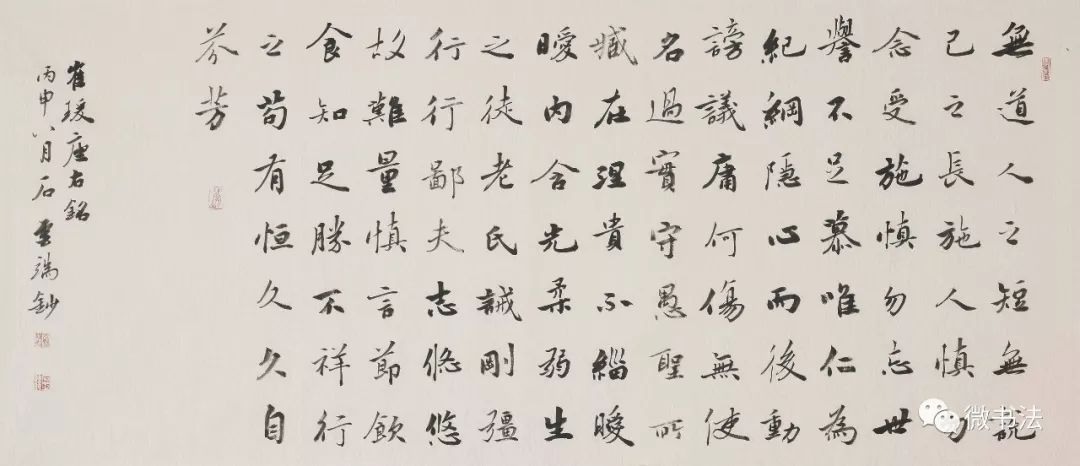 無道人之短無說
己之長施人慎勿
念受施慎勿忘世
譽不足慕唯仁為
紀綱隱心而後動
謗議庸何傷無使
名過實守愚聖所
臧在涅貴不緇曖
曖內含光柔弱生
之徒老氏誡剛彊
行行鄙夫志悠悠
故難量慎言節飲
食知足勝不祥行
之苟有恒久久自
芬芳
崔瑗座右銘
丙申八月石鈔
微书法